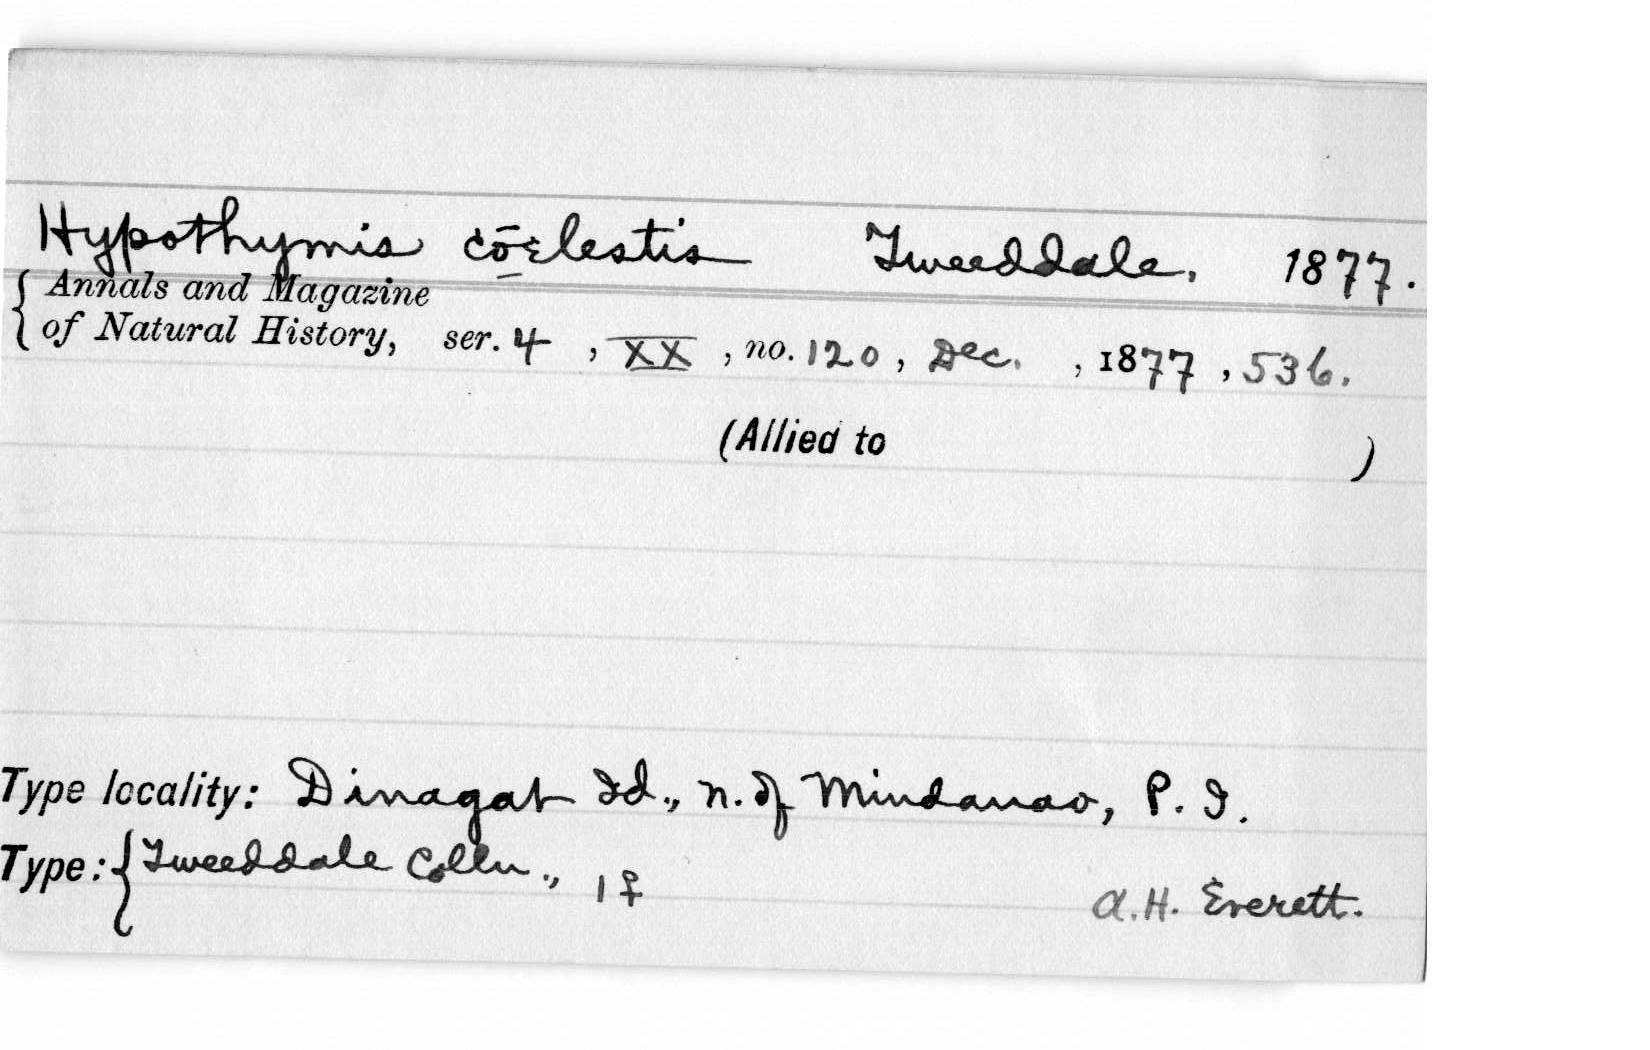 Hypothymis cōelestis Tweeddale, 1877.
{ Annals and Magazine
of Natural History, ser. 4, XX, no. 120, Dec. , 1877, 536.
(Allied to )
Type locality: Dinagat Id., n. of Mindanao, P. I.
Type: { Tweeddale Colln., 1 ♀
A. H. Everett.